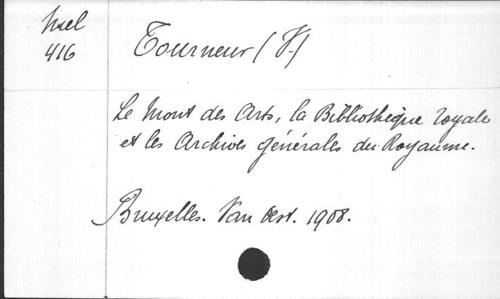 416
Tourneur (V.)
Le Mont des Arts, la Bibliothèque royale
et les Archives générales du Royaume.
Bruxelles. Van Oest. 1908.